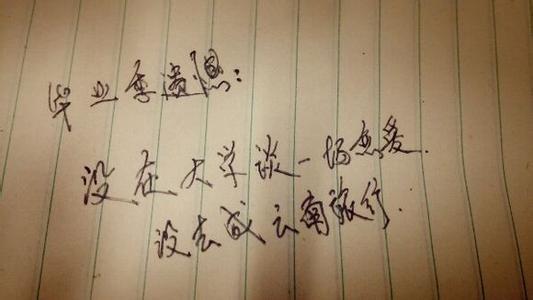 毕业季遗憾:
没在大学谈一场恋爱.
没去成云南旅行.